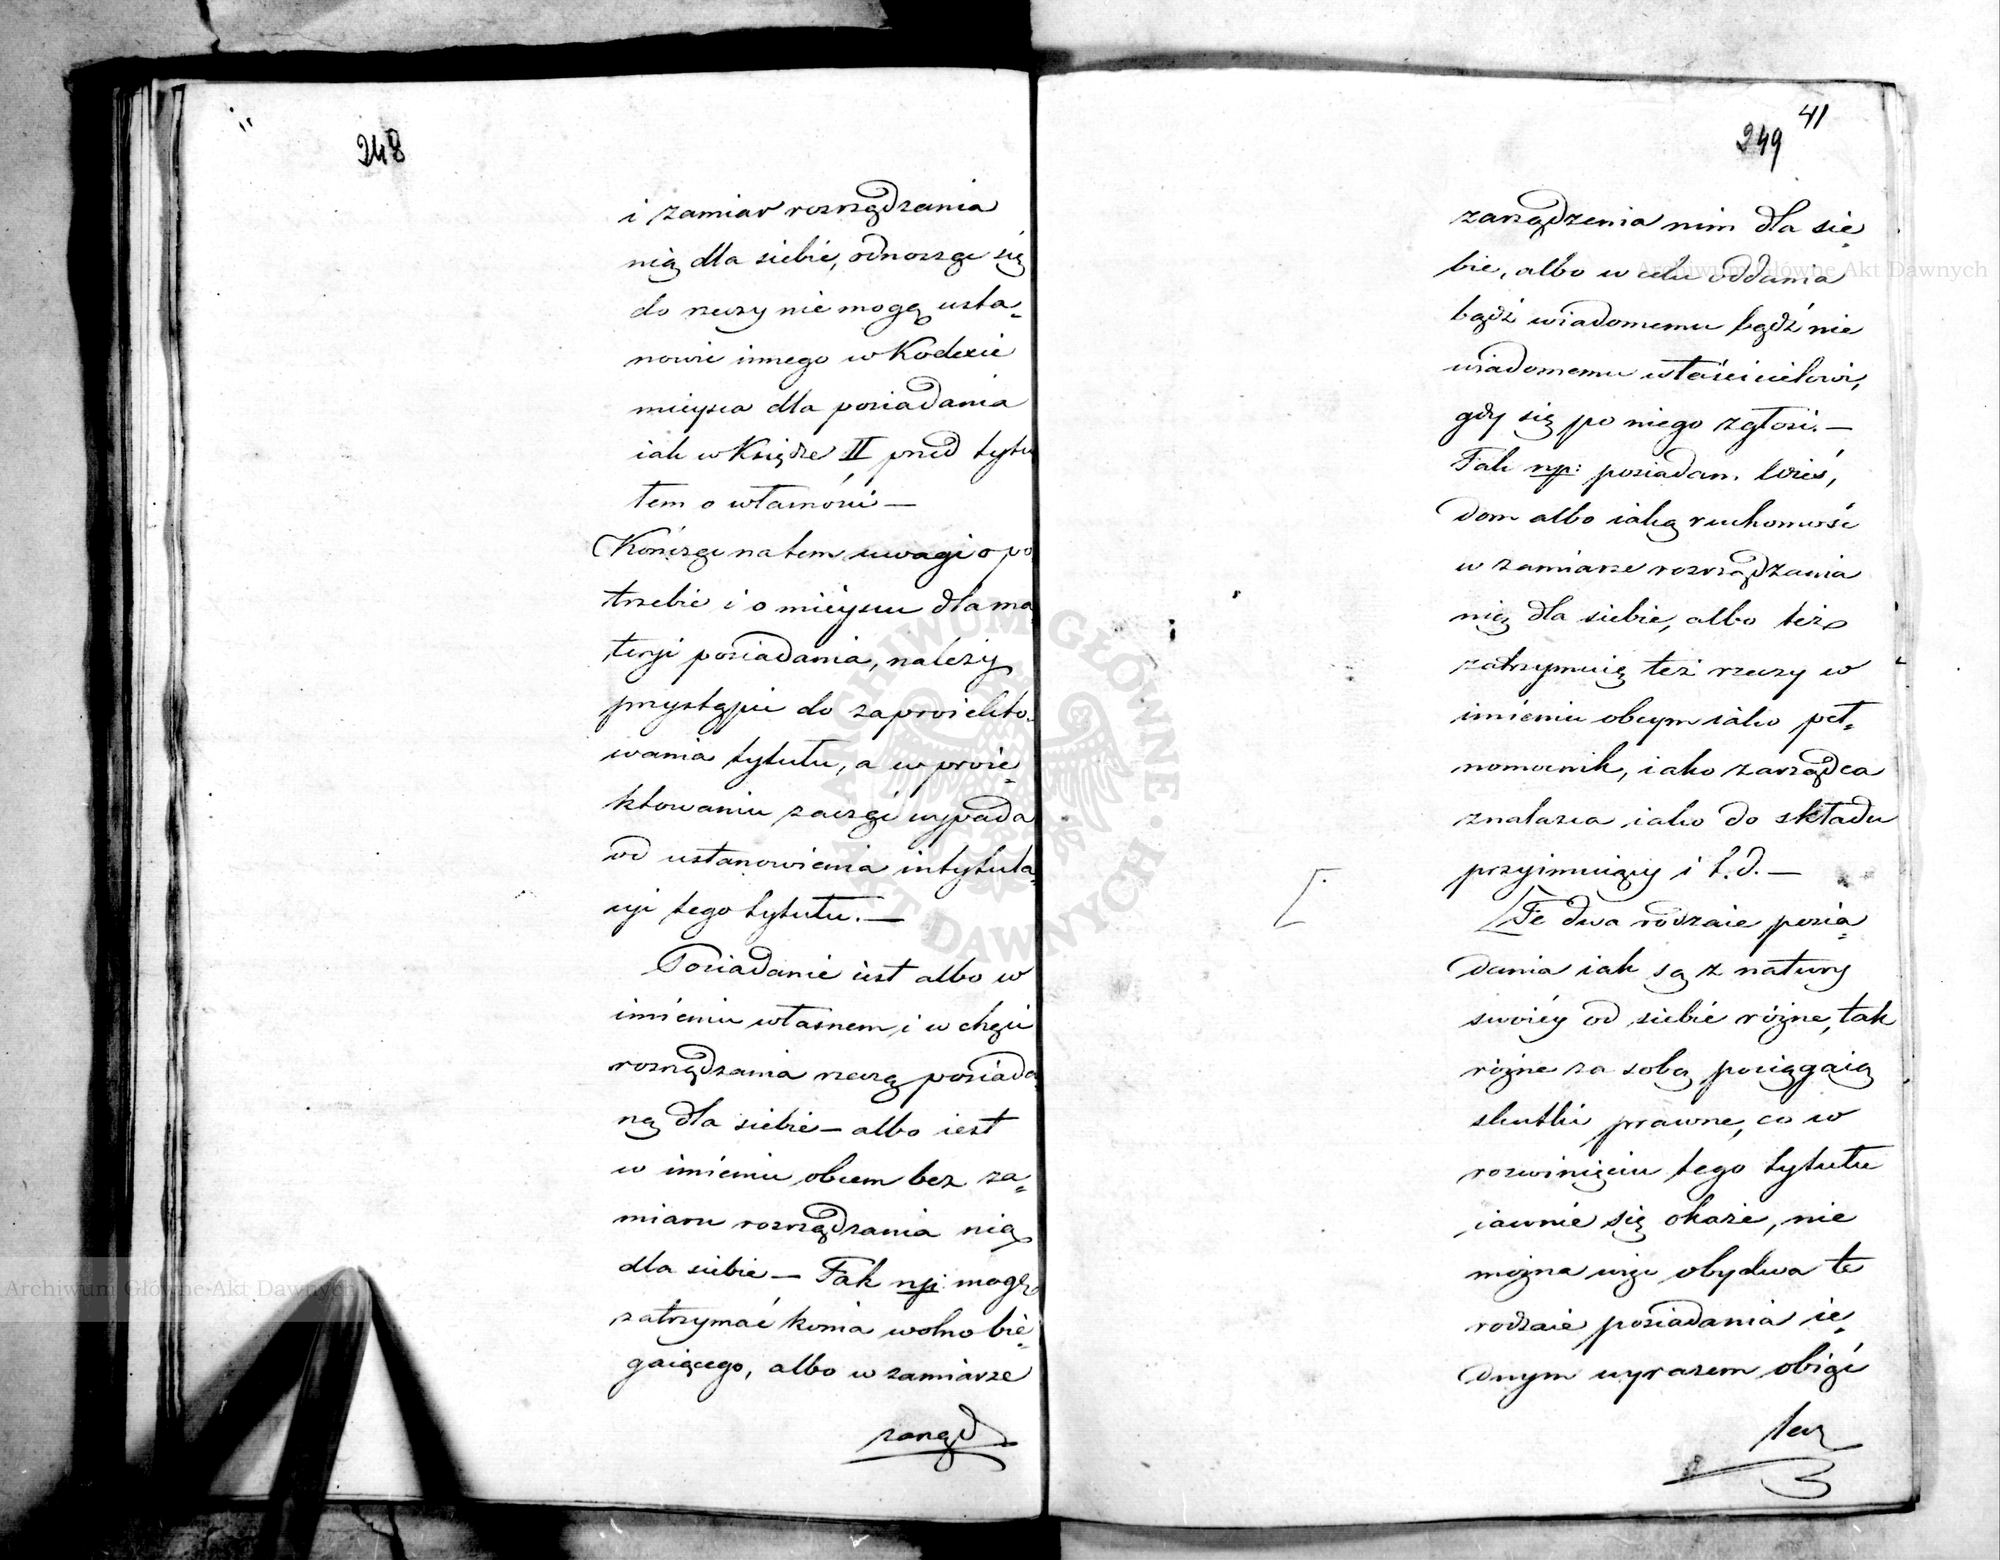 248
i zamiar rozrządzania
nią dla siebie, odnosząc się
do rzeczy nie mogą usta„
nowić innego w Kodexie
mieysca dla posiadania
iak w Księdze II przed tytu
łem o własności —
Kończąc na tem uwagi o po
trzebie i o mieyscu dla ma
teryi posiadania, należy
przystąpić do zaproiekto„
wania tytułu, a w proie„
ktowaniu zacząć wypada
od ustanowienia intytula„
cyi tego tytułu. —
Posiadanie iest albo w
imieniu własnem i w chęci
rozrządzania rzeczą posiada
ną dla siebie — albo iest
w imieniu obcem bez za„
miaru rozrządzania nią
dla siebie — Tak np: mogę
zatrzymać konia wolno bie„
gaiącego, albo w zamiarze
zarząd
41
249
zarządzenia nim dla sie„
bie, albo w celu oddania
bądź wiadomemu bądź nie
wiadomemu właścicielowi,
gdy się po niego zgłosi. —
Tak np: posiadam wieś,
dom albo iaką ruchomość
w zamiarze rozrządzania
nią dla siebie, albo też
zatrzymuię też rzeczy w
imieniu obcym iako peł„
nomocnik, iako zarządca
znalazca iako do składu
przyimuiący i t. d. —
[Te dwa rodzaie posia„
dania iak są z natury
swoiéy od siebie różne, tak
różne za sobą pociągaią
skutki prawne, co w
rozwinięciu tego tytułu
iawnie się okaże, nie
można więc obydwa te
rodzaie posiadania ie„
dnym wyrazem obiąć
lecz
Archiwum Główne Akt Dawnych
Archiwum Główne Akt Dawnych
ARCHIWUM GŁÓWNE AKT DAWNYCH